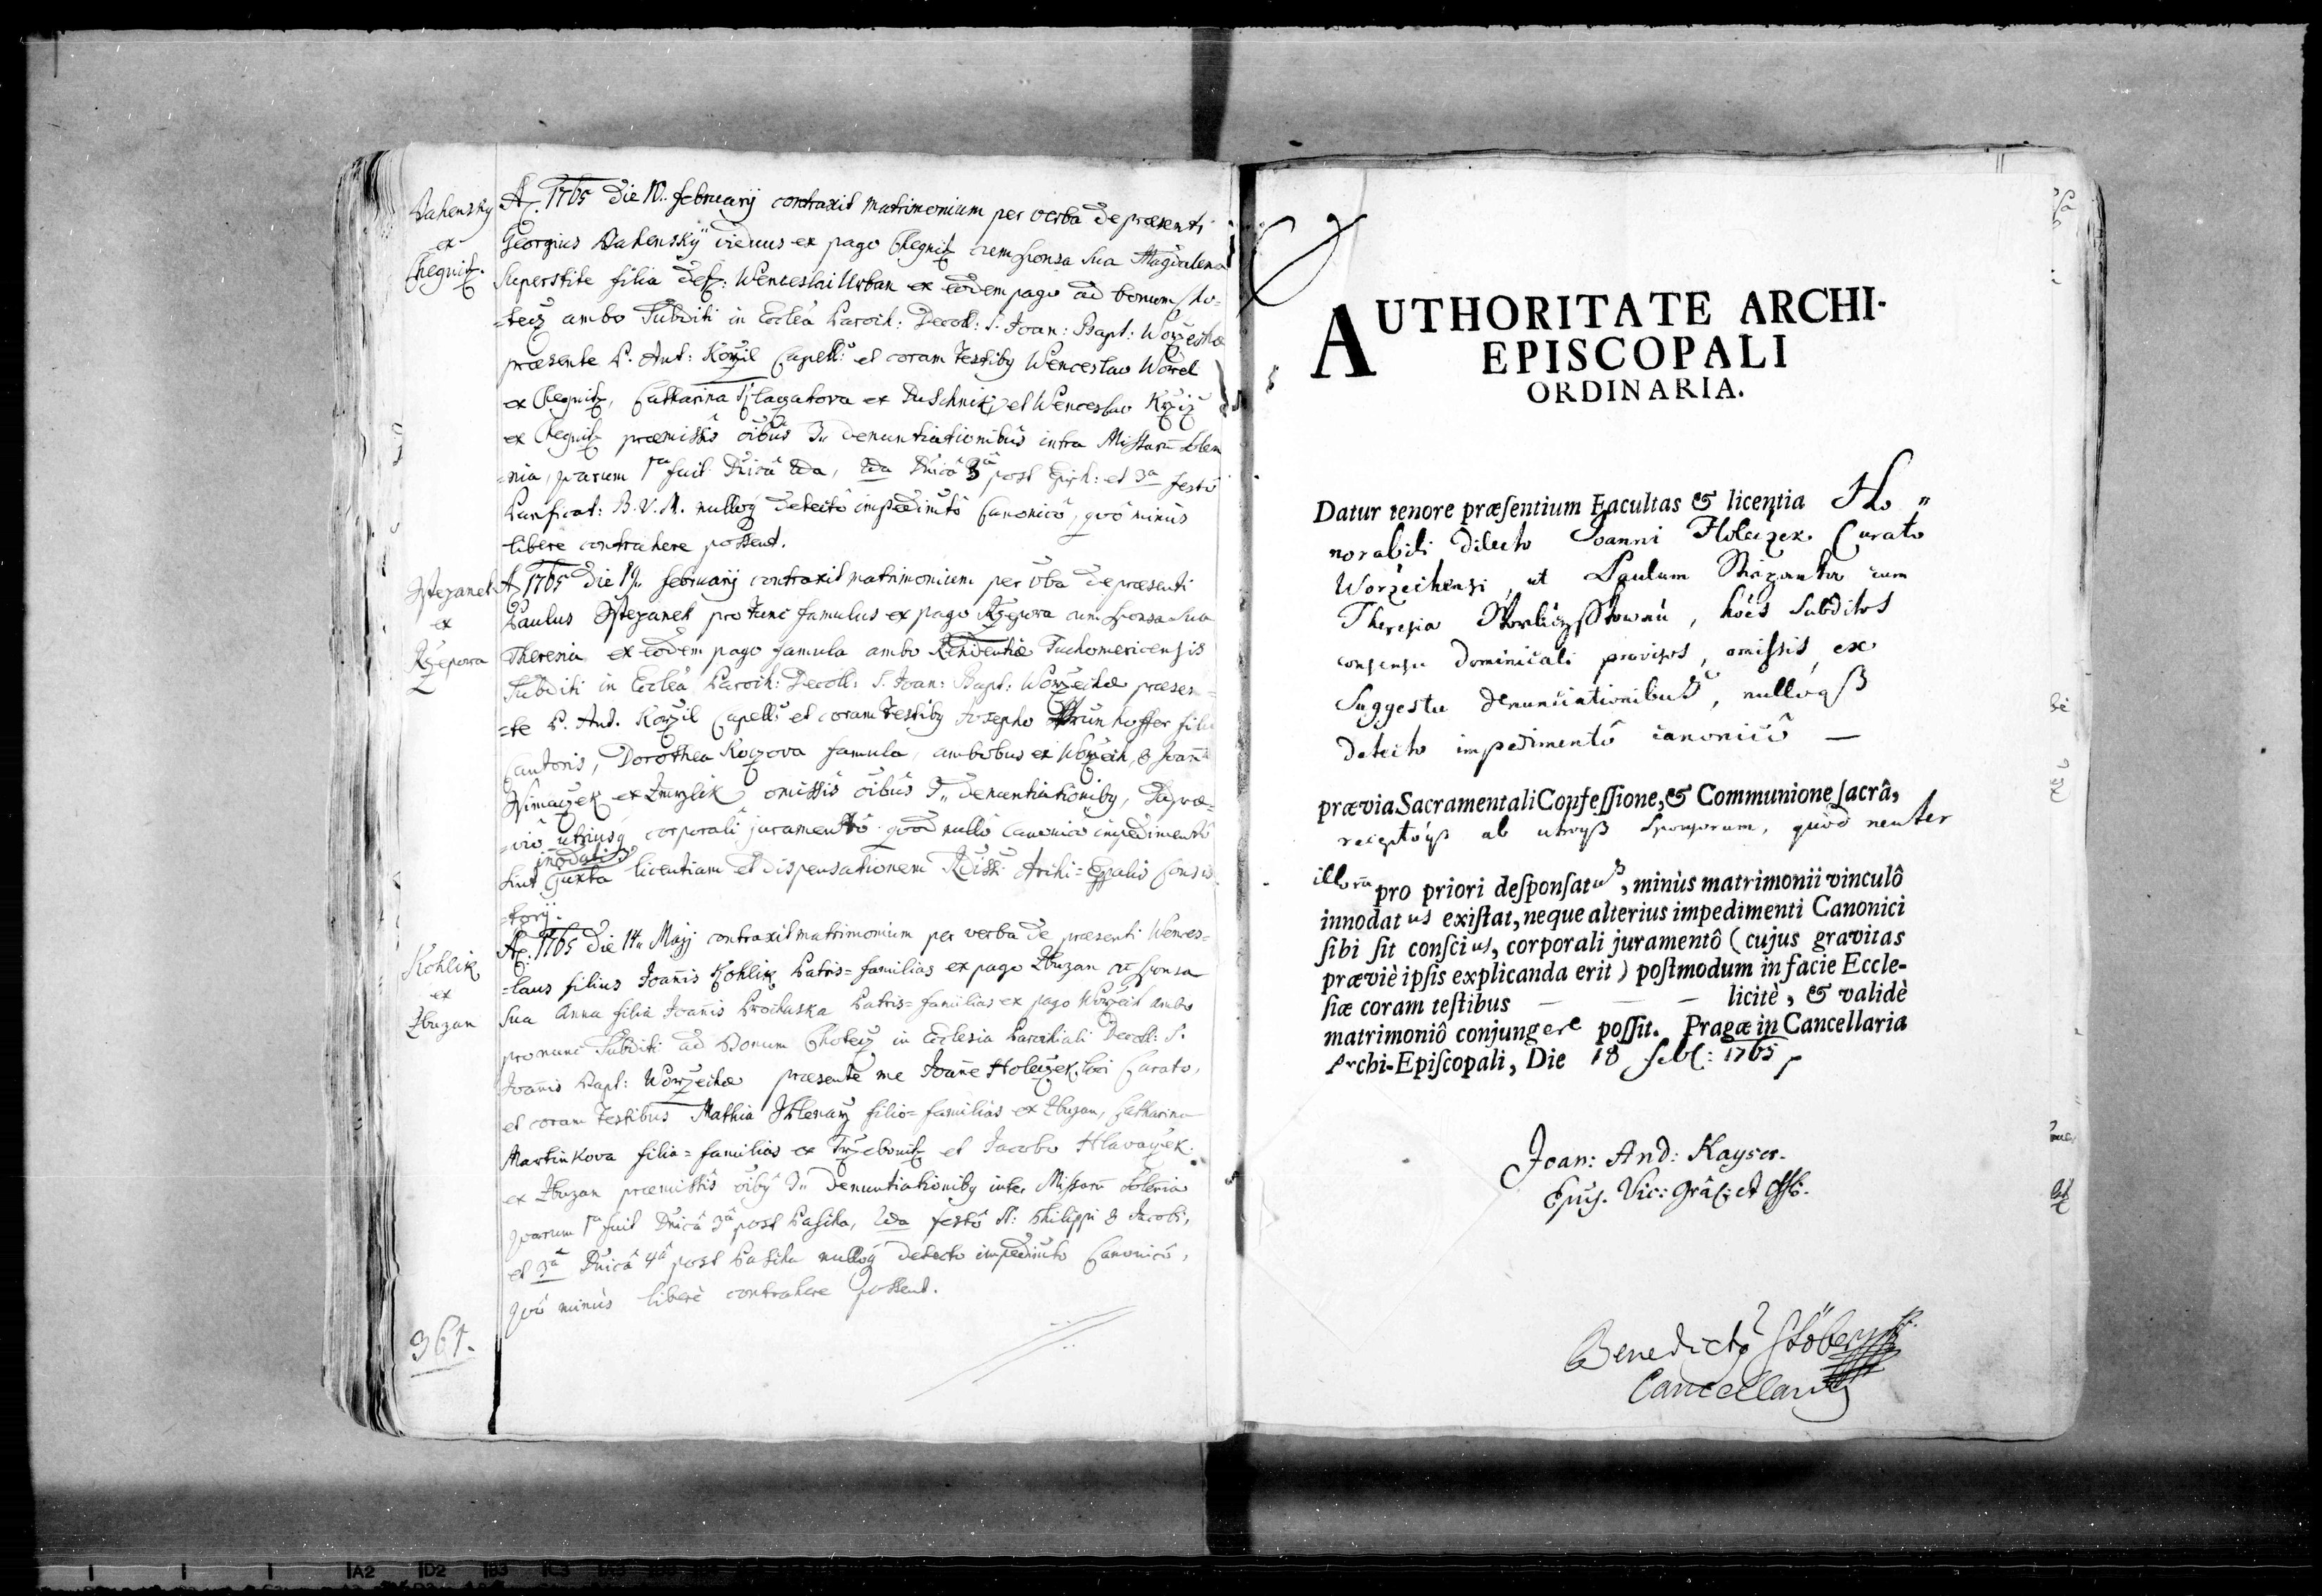 Dahensky
ex
Chegnitz.
A. 1765 Die 10. februarij contraxit matrimonium per verba de præsenti
Georgius Dahenský viduus ex pago Chegnitz cum sponsa sua Magdalena
superstite filia def: Wenceslai Urban ex eodem pago ad bonum Cho=
=tecz ambo Subditi in Ecclêa Paroch: Decoll: S. Joan: Bapt: Worzechæ
præsente P. Ant: Korzil Capell: et coram Testibg Wenceslao Worel
ex Chegnitz, Catharina ex Duschnik et Wenceslao Krziž
ex Chegnitz præmissis oibus 3 denuntiationibus intra Missarū solem
=nia, quarum 1ma fuit Dnicâ 2da, 2da Dnicâ 3â post Epiph: et 3a festo
Purificat: B. V. M. nulloq detectô impedimtô Canonicô, quô minus
libere contrahere possent.
Sstepanek
ex
Rzepora
A. 1765 Die 19. februarij contraxit matrimonium per vba de præsenti
Paulus Sstepanek pro tunc famulus ex pago Rzepora cum sponsa sua
Theresia ex eodem pago famula ambo Residentiæ Tuchomericensis
Subditi in Ecclêa Paroch: Decoll: S. Joan: Bapt: Worzechæ præsen=
=te P. Ant. Korzil Capell: et coram Testibg Josepho Brunhoffer filio
Cantoris, Dorothea Koczova famula, ambobus ex Worzech, & Joanē
Ssimaczek ex Zmrzlik omissis oibus 3 denuntiationibg, depræ=
=viô utriusq corporali juramentô quod nullô Canonico impedimentô
innodati
sint juxta licentiam et dispensationem Rdiss: Archi=Eppalis Consis=
=torij.
Kohlik
ex
Zbuzan
A. 1765 Die 14. Maij contraxit matrimonium per verba de præsenti Wences=
=laus filius Joañis Kohlik Patris=familias ex pago Zbuzan cum sponsa
sua Anna filia Joañis Prochaska Patris=familias ex pago Worzech ambo
pro nunc Subditi ad Bonum Chotecz in Ecclesia Parochiali Decoll: S.
Joañis Bapt: Worzechæ præsente me Joañe Holeczek loci Curato,
et coram Testibus Mathia Sklenarz filio=familias ex Zbuzan, Catharina
Martinkova filia=familias ex Trzebonitz et Jacobo Hlavaczek
ex Zbuzan præmissis oibg 3 denuntiationibg inter Missarū solenia
quarum 1ma fuit Dnicâ 3â post Pascha, 2da festô SS: Philippi & Jacobi,
et 3â Dnicâ 4â post Pascha nulloq detecto impedimto Canonicô,
quô minùs liberè contrahere possent.
361.
AUTHORITATE ARCHI-
EPISCOPALI
ORDINARIA.
Datur tenore præsentium Facultas & licentia Ho=
norabili Dilecto Joanni Holeczek Curato
Worzechensi, ut Paulum Stiepanka cum
Theresia, hôcs Subditos
consensu Dominicali provisos, omissis ex
Suggestu denunciationibus, nulloqß
detecto impedimentô canonicô —
prævia Sacramentali Confessione, & Communione sacrâ,
receptôqß ab utroqß Sponsorum, quòd neuter
illorū pro priori desponsatus, minùs matrimonii vinculô
innodatus existat, neque alterius impedimenti Canonici
sibi sit conscius, corporali juramentô (cujus gravitas
præviè ipsis explicanda erit) postmodum in facie Eccle-
siæ coram testibus — — — licitè, & validè
matrimoniô conjungere possit. Pragæ in Cancellaria
Archi-Episcopali, Die 18 Feb: 1765
Joan: And: Kayser.
Epus. Vic: Grâl: et Offi.
Benedictg Stöber
Cancellarig